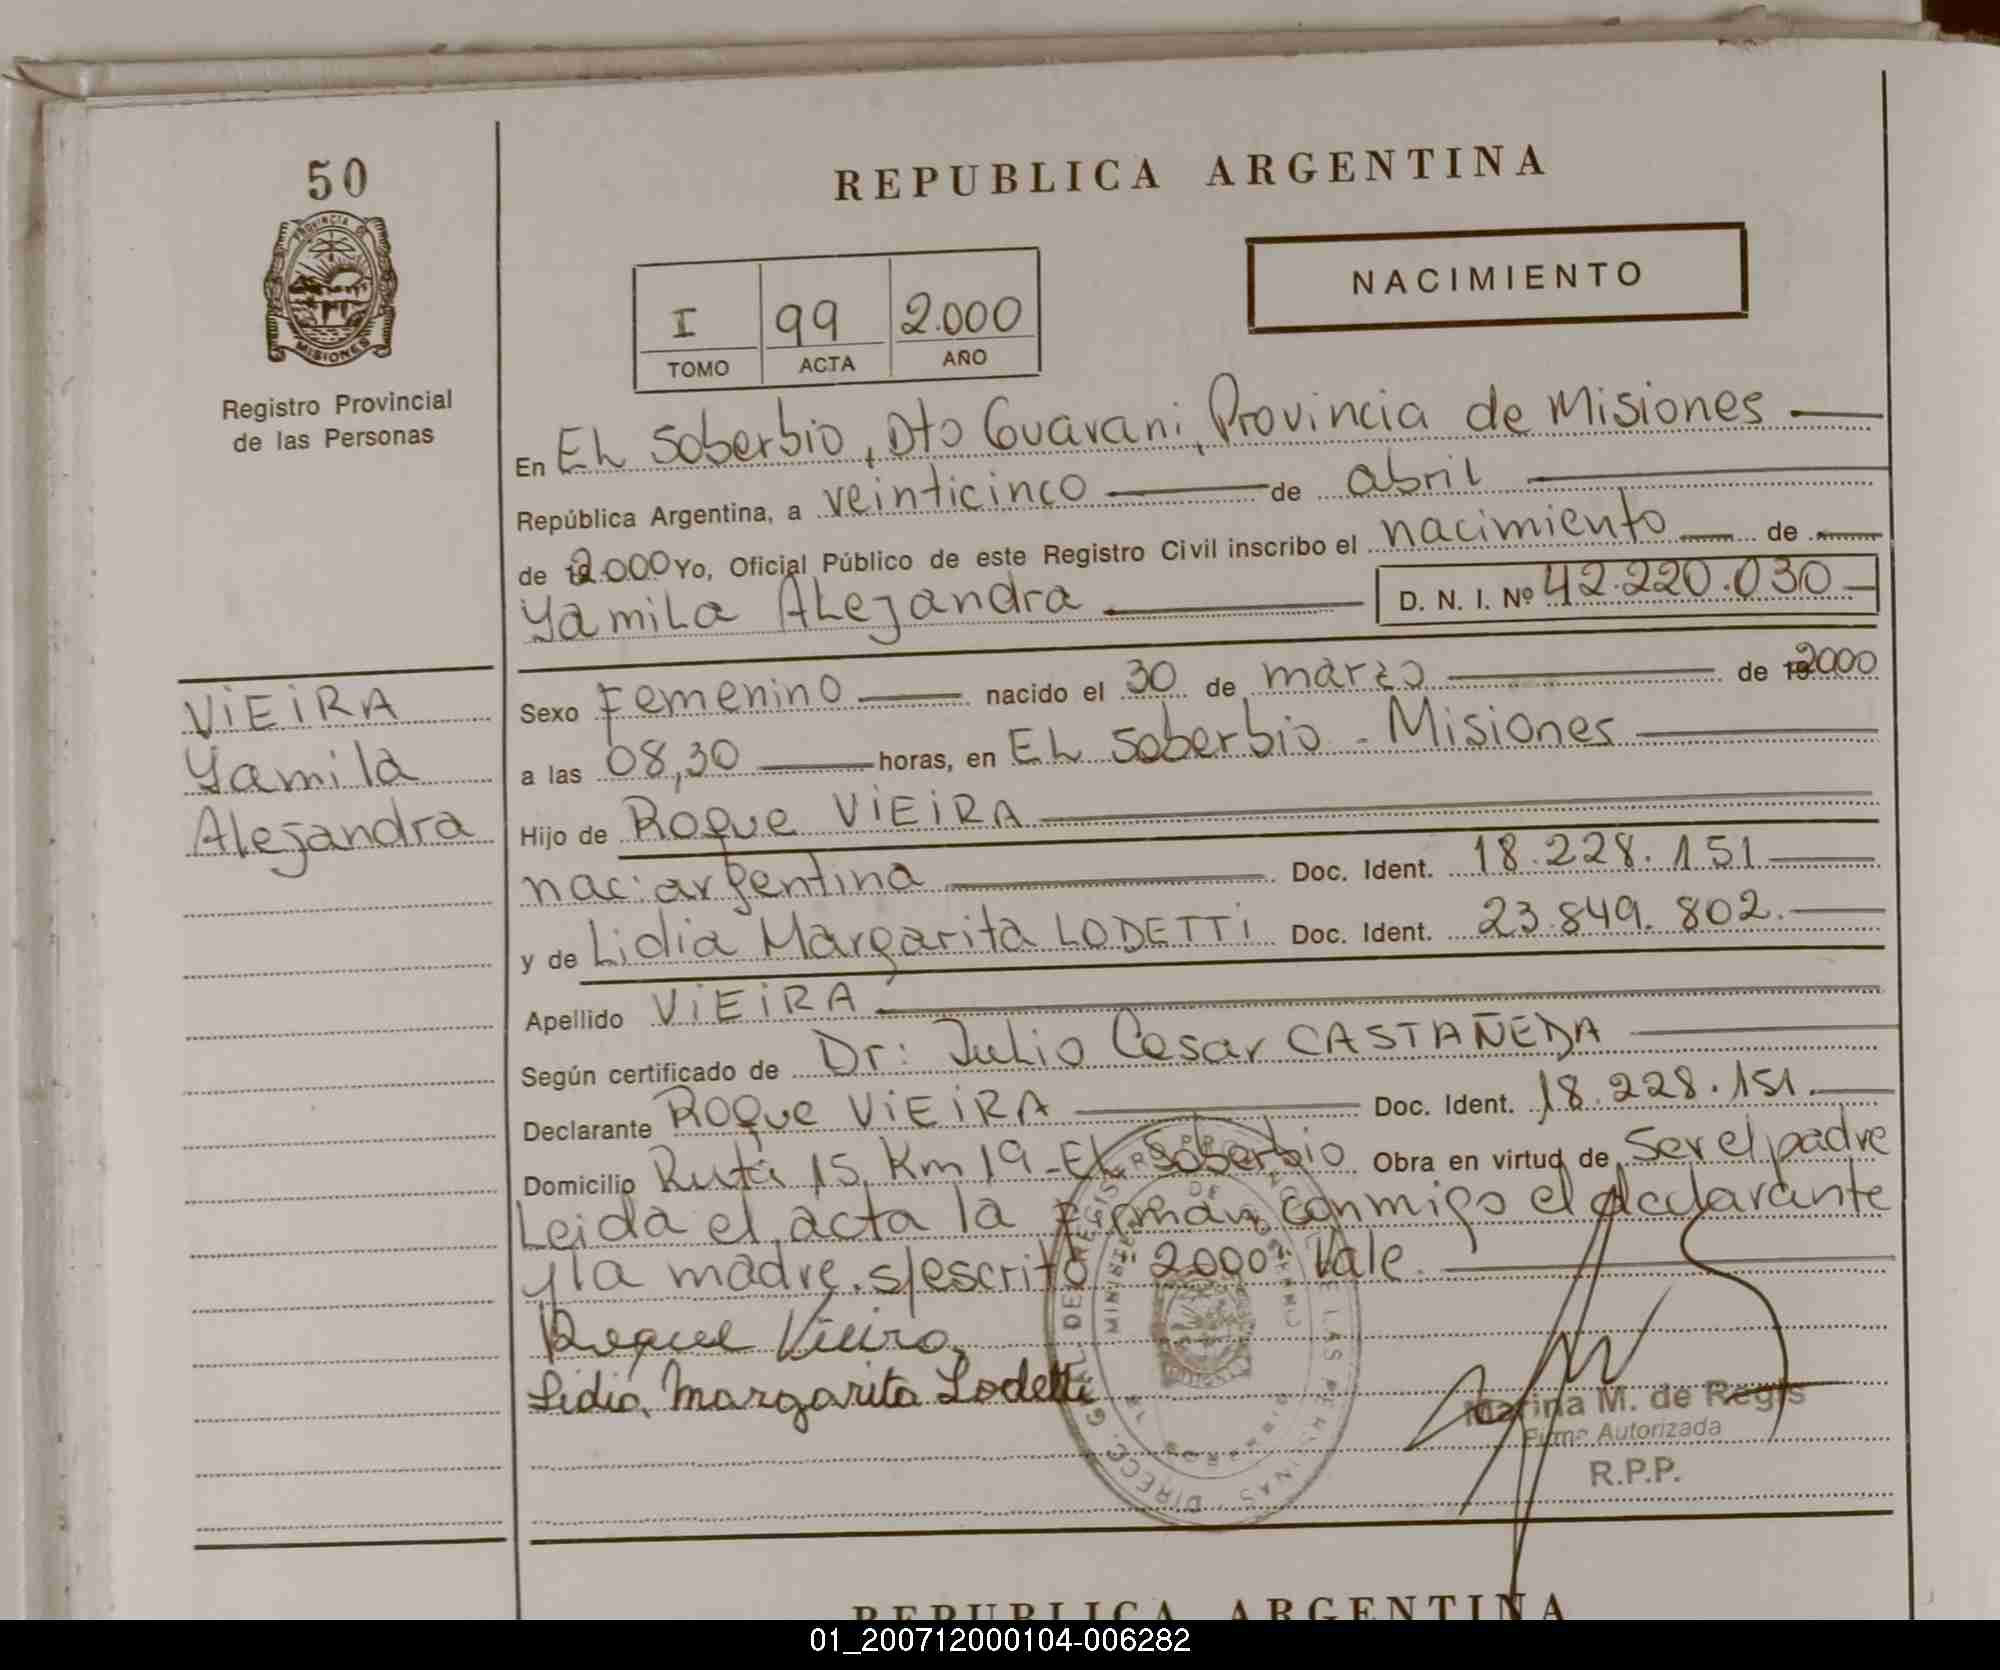 50
PROVINCIA DE
MISIONES
Registro Provincial
de las Personas
VIEIRA
Yamila
Alejandra
REPUBLICA ARGENTINA
NACIMIENTO
I 99 2.000
TOMO ACTA AÑO
En EL Soberbio, Dto Guarani, Provincia de Misiones
República Argentina, a veinticinco de abril
de 2.000 Yo, Oficial Público de este Registro Civil inscribo el nacimiento de
Yamila Alejandra D. N. I. Nº 42.220.030
Sexo Femenino nacido el 30 de marzo de 2000
a las 08,30 horas, en EL Soberbio - Misiones
Hijo de Roque VIEIRA
nac: argentina Doc. Ident. 18.228.151
y de Lidia Margarita LODETTI Doc. Ident. 23.849.802.
Apellido VIEIRA
Según certificado de Dr: Julio Cesar CASTAÑEDA
Declarante Roque VIEIRA Doc. Ident. 18.228.151.
Domicilio Ruta 15 Km 19 - EL Soberbio Obra en virtud de Ser el padre
Leida el acta la firman conmigo el declarante
y la madre. s/escrito "2000" Vale.
Roque Vieira
Lidia Margarita Lodetti
Marina M. de Regis
Firma Autorizada
R.P.P.
REPUBLICA ARGENTINA
01_200712000104-006282